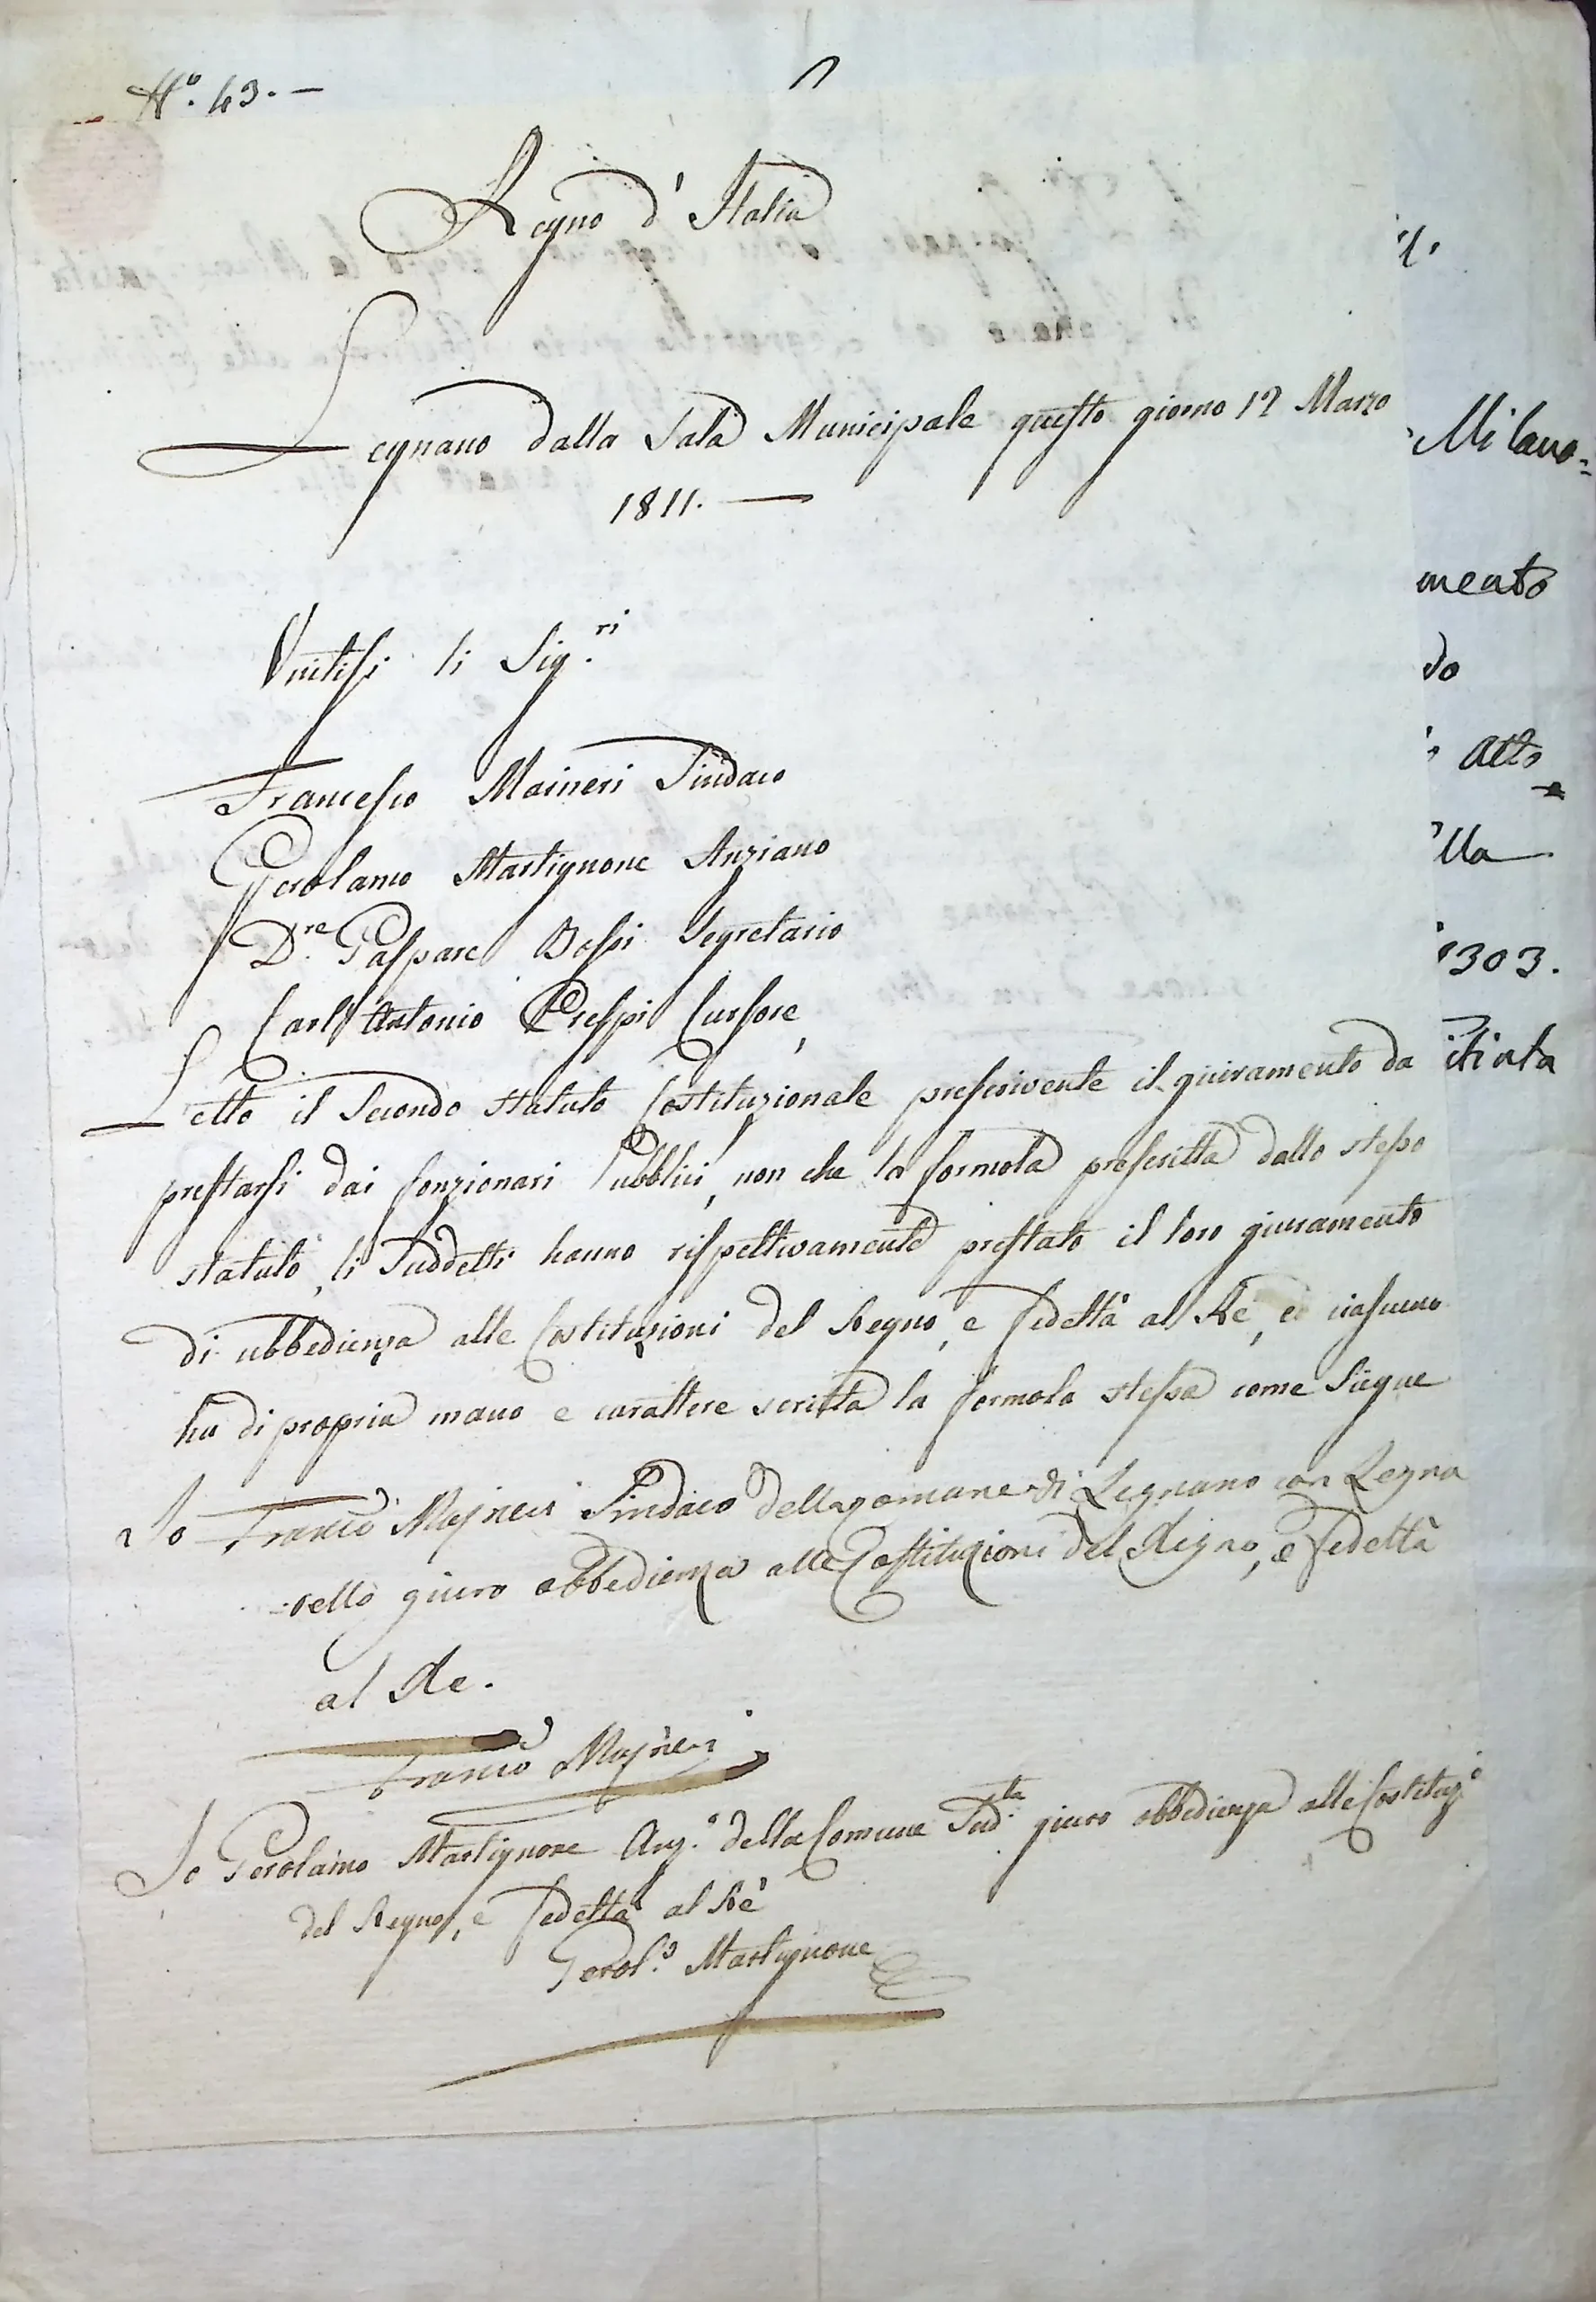 N.º 43. —
Regno d'Italia
Legnano dalla Sala Municipale questo giorno 12 Marzo
1811. —
Unitisi li Sig.ri
Francesco Maineri Sindaco
Gerolamo Martignone Anziano
D.re Gaspare Bossi Segretario
Carl'Antonio Crespi Cursore,
Letto il Secondo Statuto Costituzionale prescrivente il giuramento da
prestarsi dai fonzionari Pubblici, non che la formola prescritta dallo stesso
statuto, li Suddetti hanno rispettivamente prestato il loro giuramento
di ubbedienza alle Costituzioni del Regno, e fedeltà al Ré, ed ciascuno
ha di propria mano e carattere scritta la formola stessa come Siegue
Io Franco Majneri Sindaco della Comune di Legnano con Legna
rello giuro obbedienza alle Costituzioni del Regno, e fedeltà
al Re.
Franco Majneri
Io Gerolamo Martignone Anz.º della Comune Sud.ta giuro obbedienza alle Costituz.i
del Regno, e fedeltà al Ré
Gerol.º Martignone
Milano=
mento
do
Atto
lla
303.